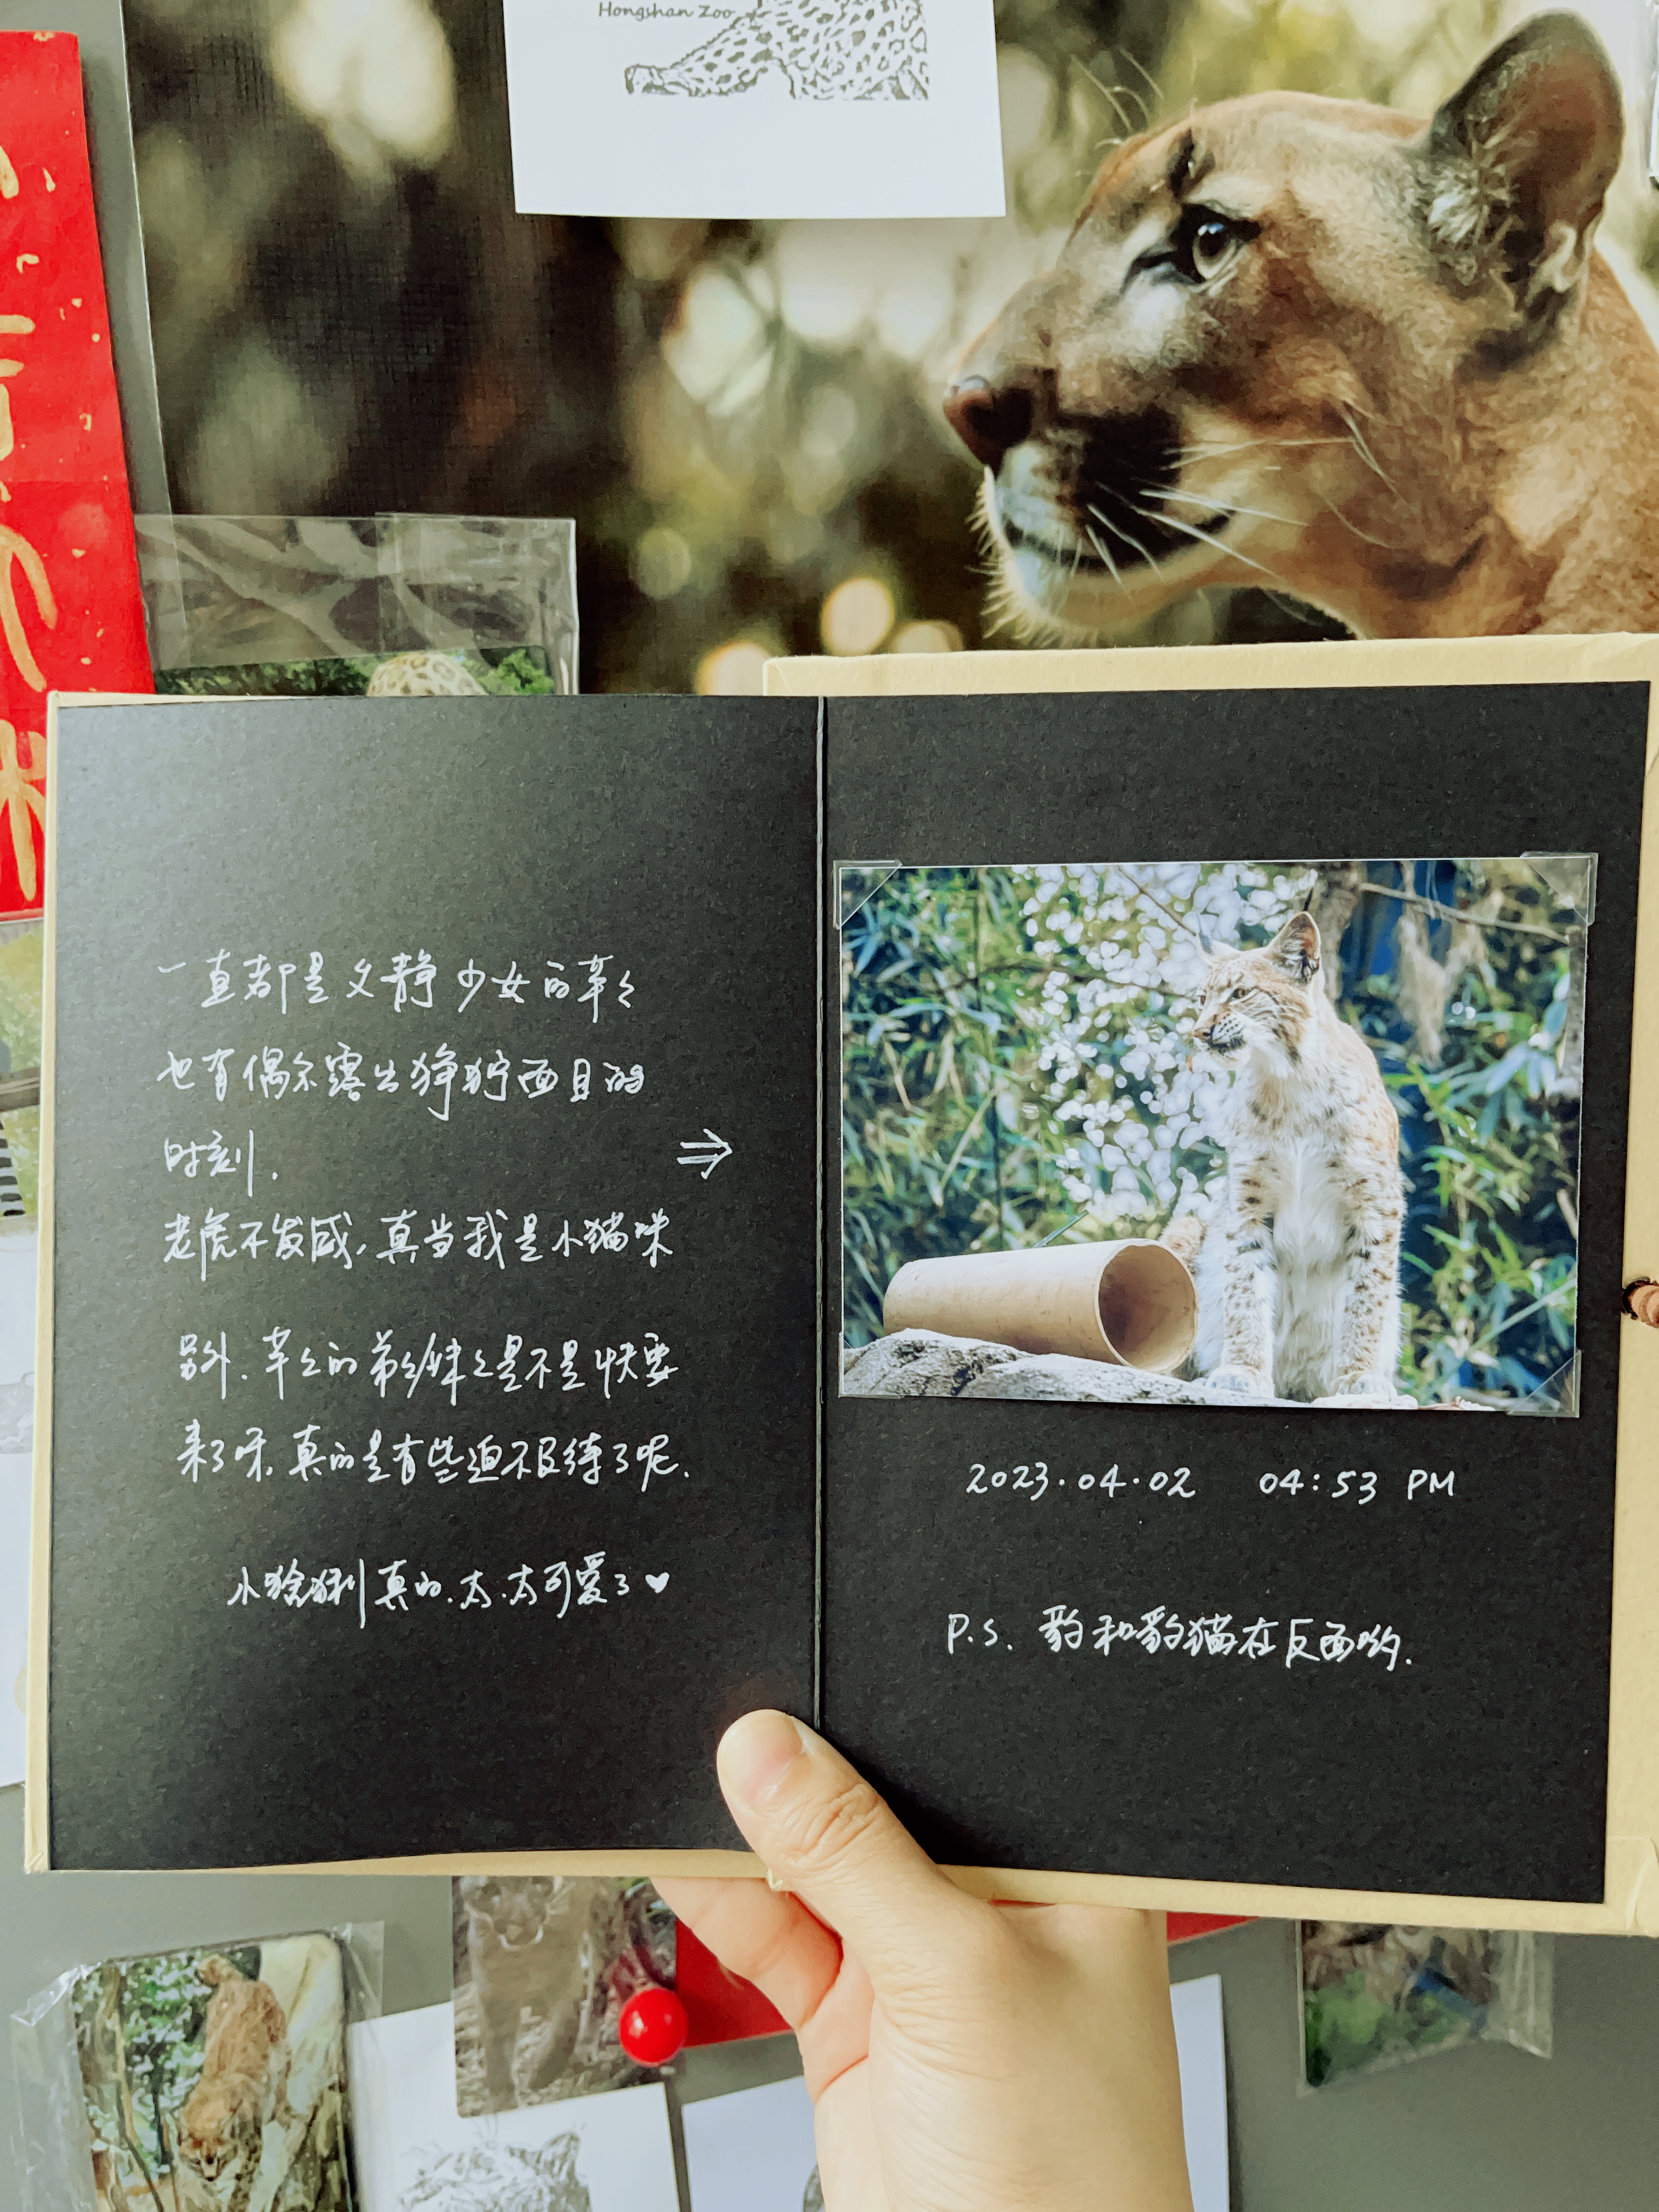 Hongshan Zoo
一直都是文静少女的莘々
也有偶尔露出狰狞面目的
时刻.
老虎不发威,真当我是小猫咪
⇒
另外.莘々的弟弟妹々是不是快要
来了呀.真的是有些迫不及待了呢.
小猞猁真的.太.太可爱了♥
2023.04.02 04:53 PM
P.S. 豹和豹猫在反面哟.